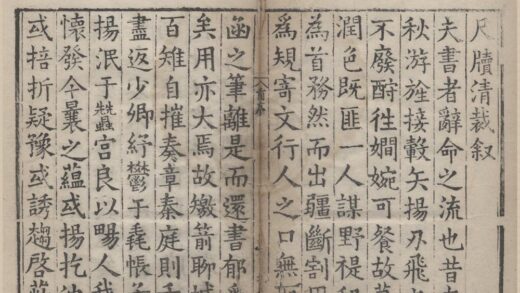 尺牘清裁叙
夫書者辭命之流也昔
秋游旌接轂矢揚刃飛
不廢酧徃嫺婉可餐故
潤色既匪一人謀野禔
爲首務然而出疆斷割
爲規寄文行人之口無
函之筆離是而還書郁
矣用亦大焉故繳箭聊城
百雉自摧奏章秦庭則
盡返少卿紓鬱于毳帳
揚泯于蠶宮良以暢人
懷發今曩之蘊或揚扢
或掊折疑豫或誘趨啓